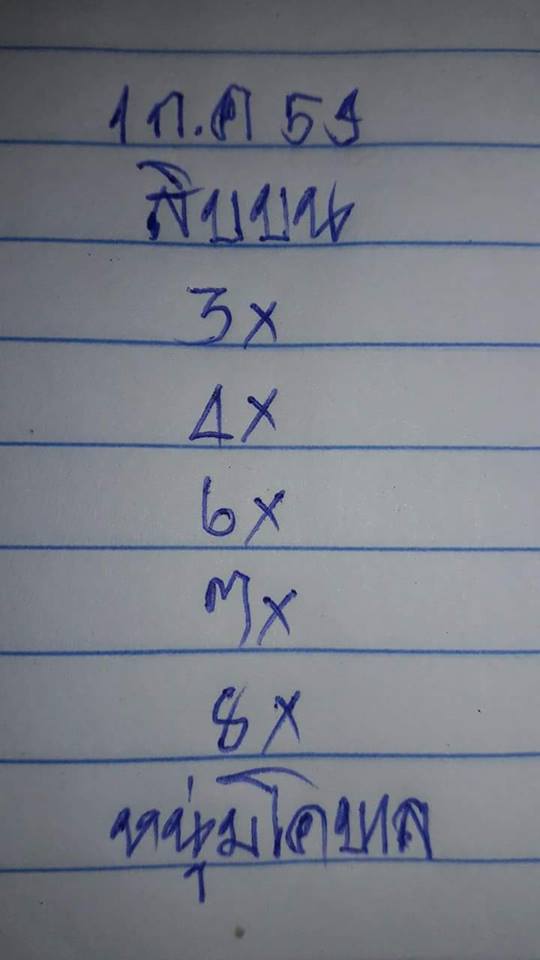 1 ก.ค 59
สิบบน
3x
4x
6x
7x
8x
หนุ่มโคบาล